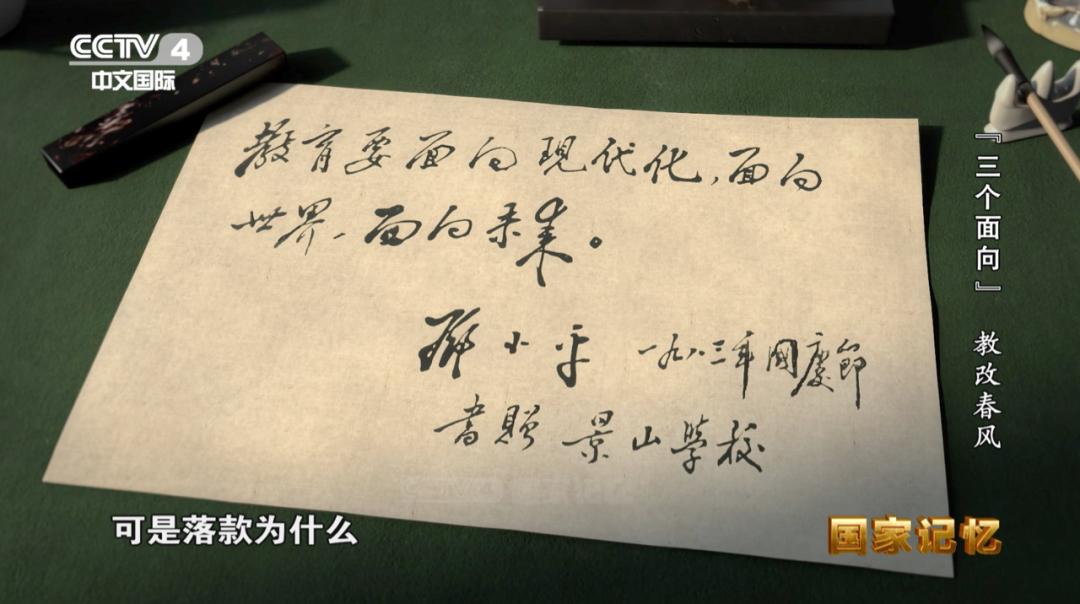 CCTV 4
中文国际
教育要面向现代化,面向
世界、面向未来。
邓小平 一九八三年國慶節
書贈 景山學校
『三个面向』 教改春风
可是落款为什么
国家记忆